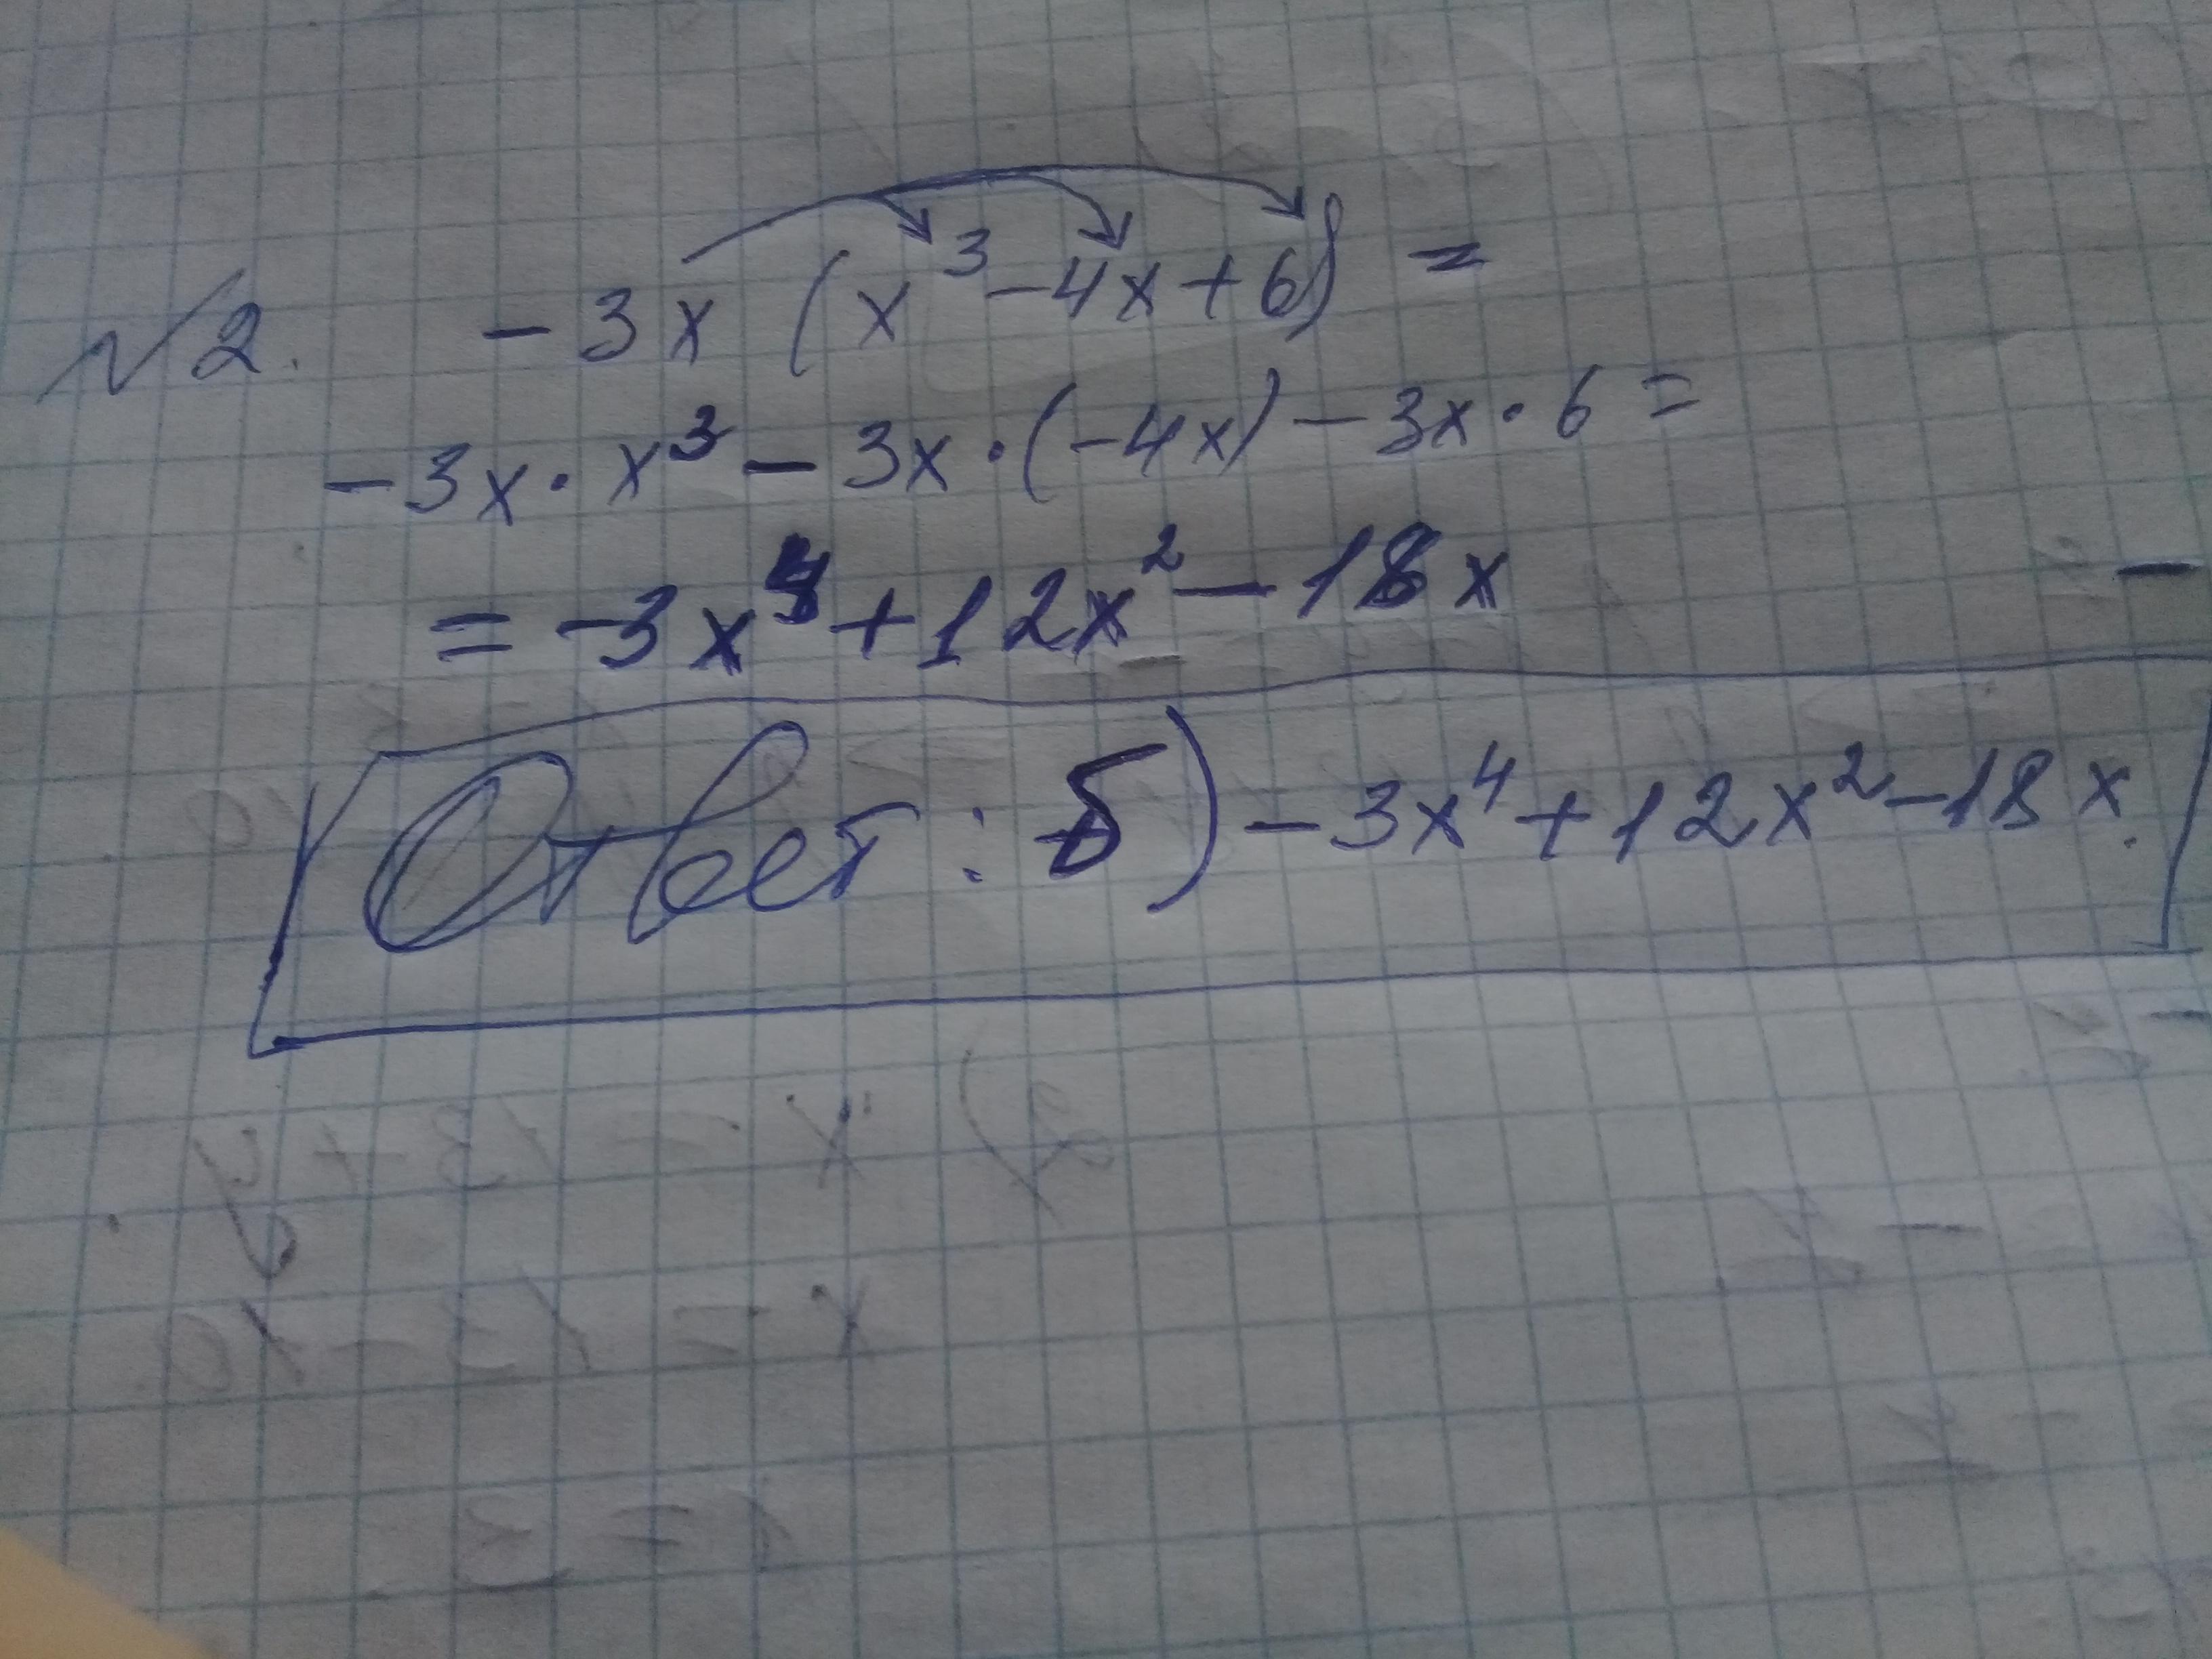 №2. -3x (x³-4x+6) =
-3x·x³-3x·(-4x)-3x·6=
=-3x⁴+12x²-18x
Ответ: б) -3x⁴+12x²-18x.